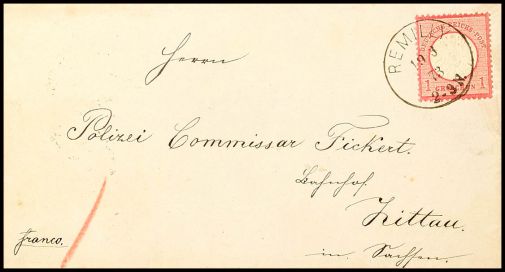 REMILLY
DEUTSCHE REICHS-POST
1 GROSCHEN 1
Herrn
Polizei Commissar Fickert.
Bahnhof
Zittau.
franco.
in Sachsen.